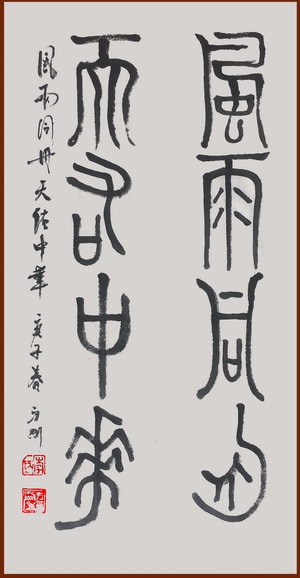 風雨同舟
天佑中華
風雨同舟天佑中華 庚子春